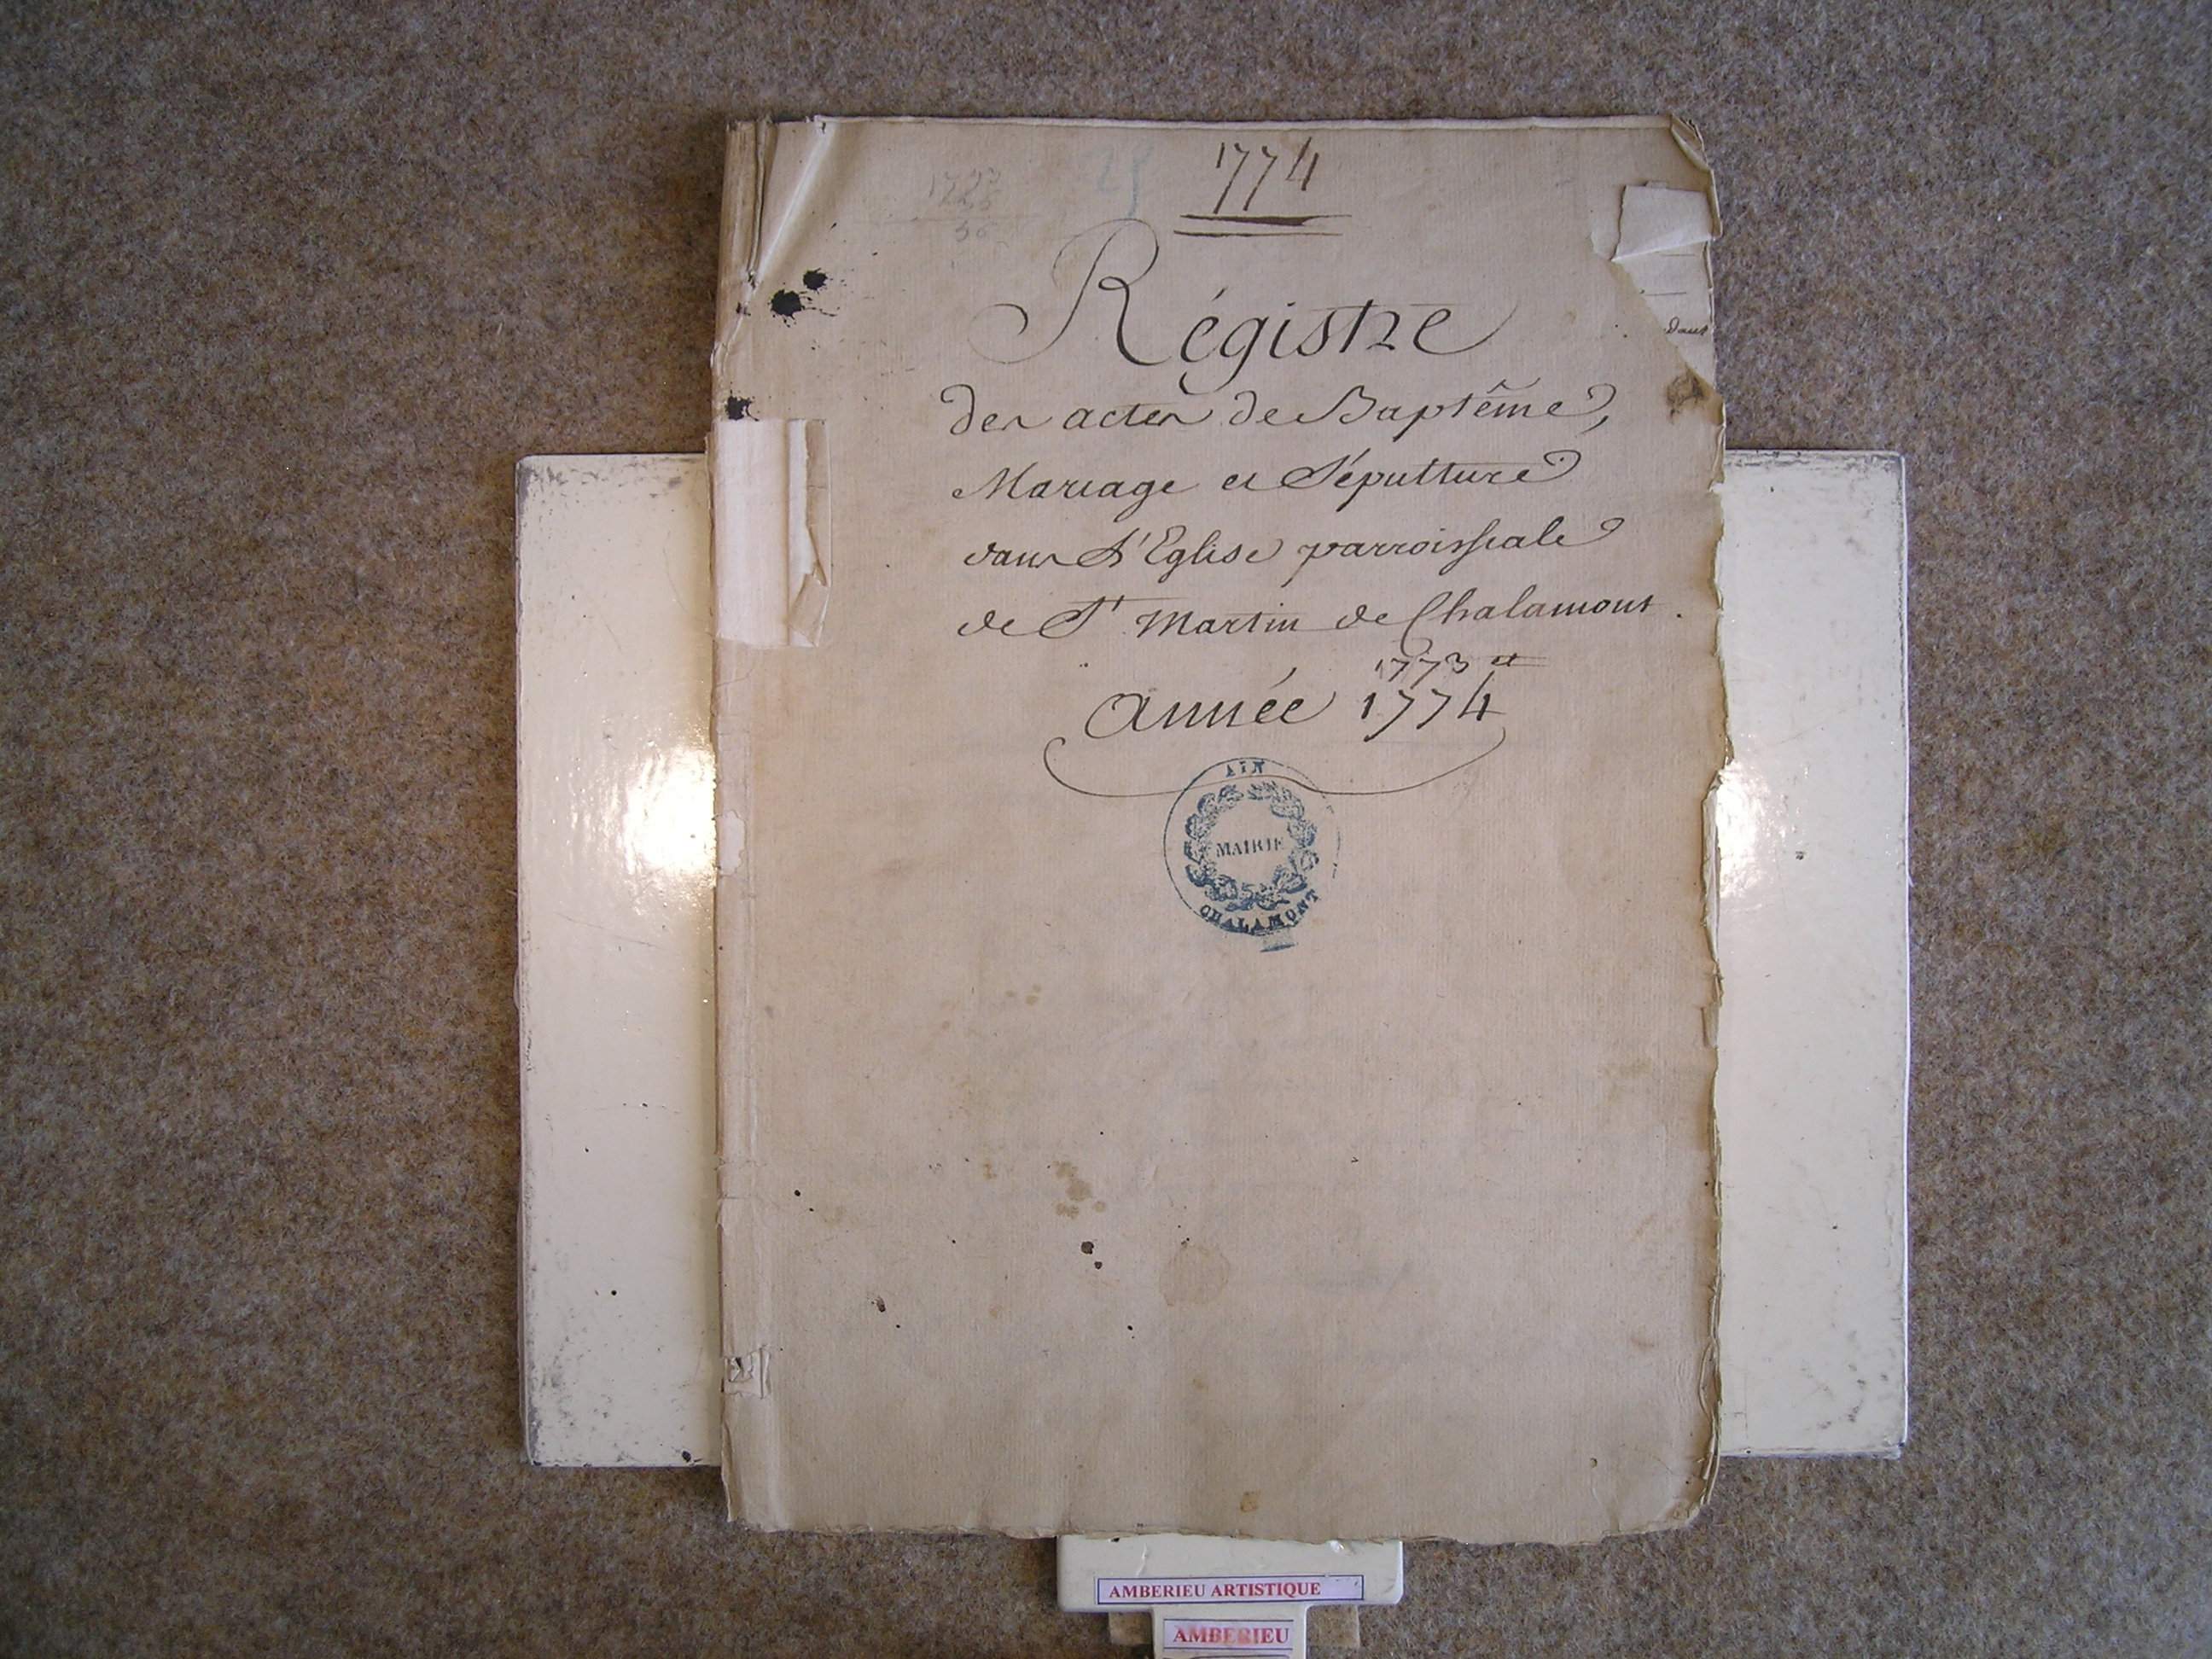 1774
29
Régistre
des actes de Baptême,
Mariage et Sépulture
dans L'Eglise parroissiale
de St Martin de Chalamont.
1773 et
année 1774
AIN
MAIRIE
CHALAMONT
dans
AMBERIEU ARTISTIQUE
AMBERIEU